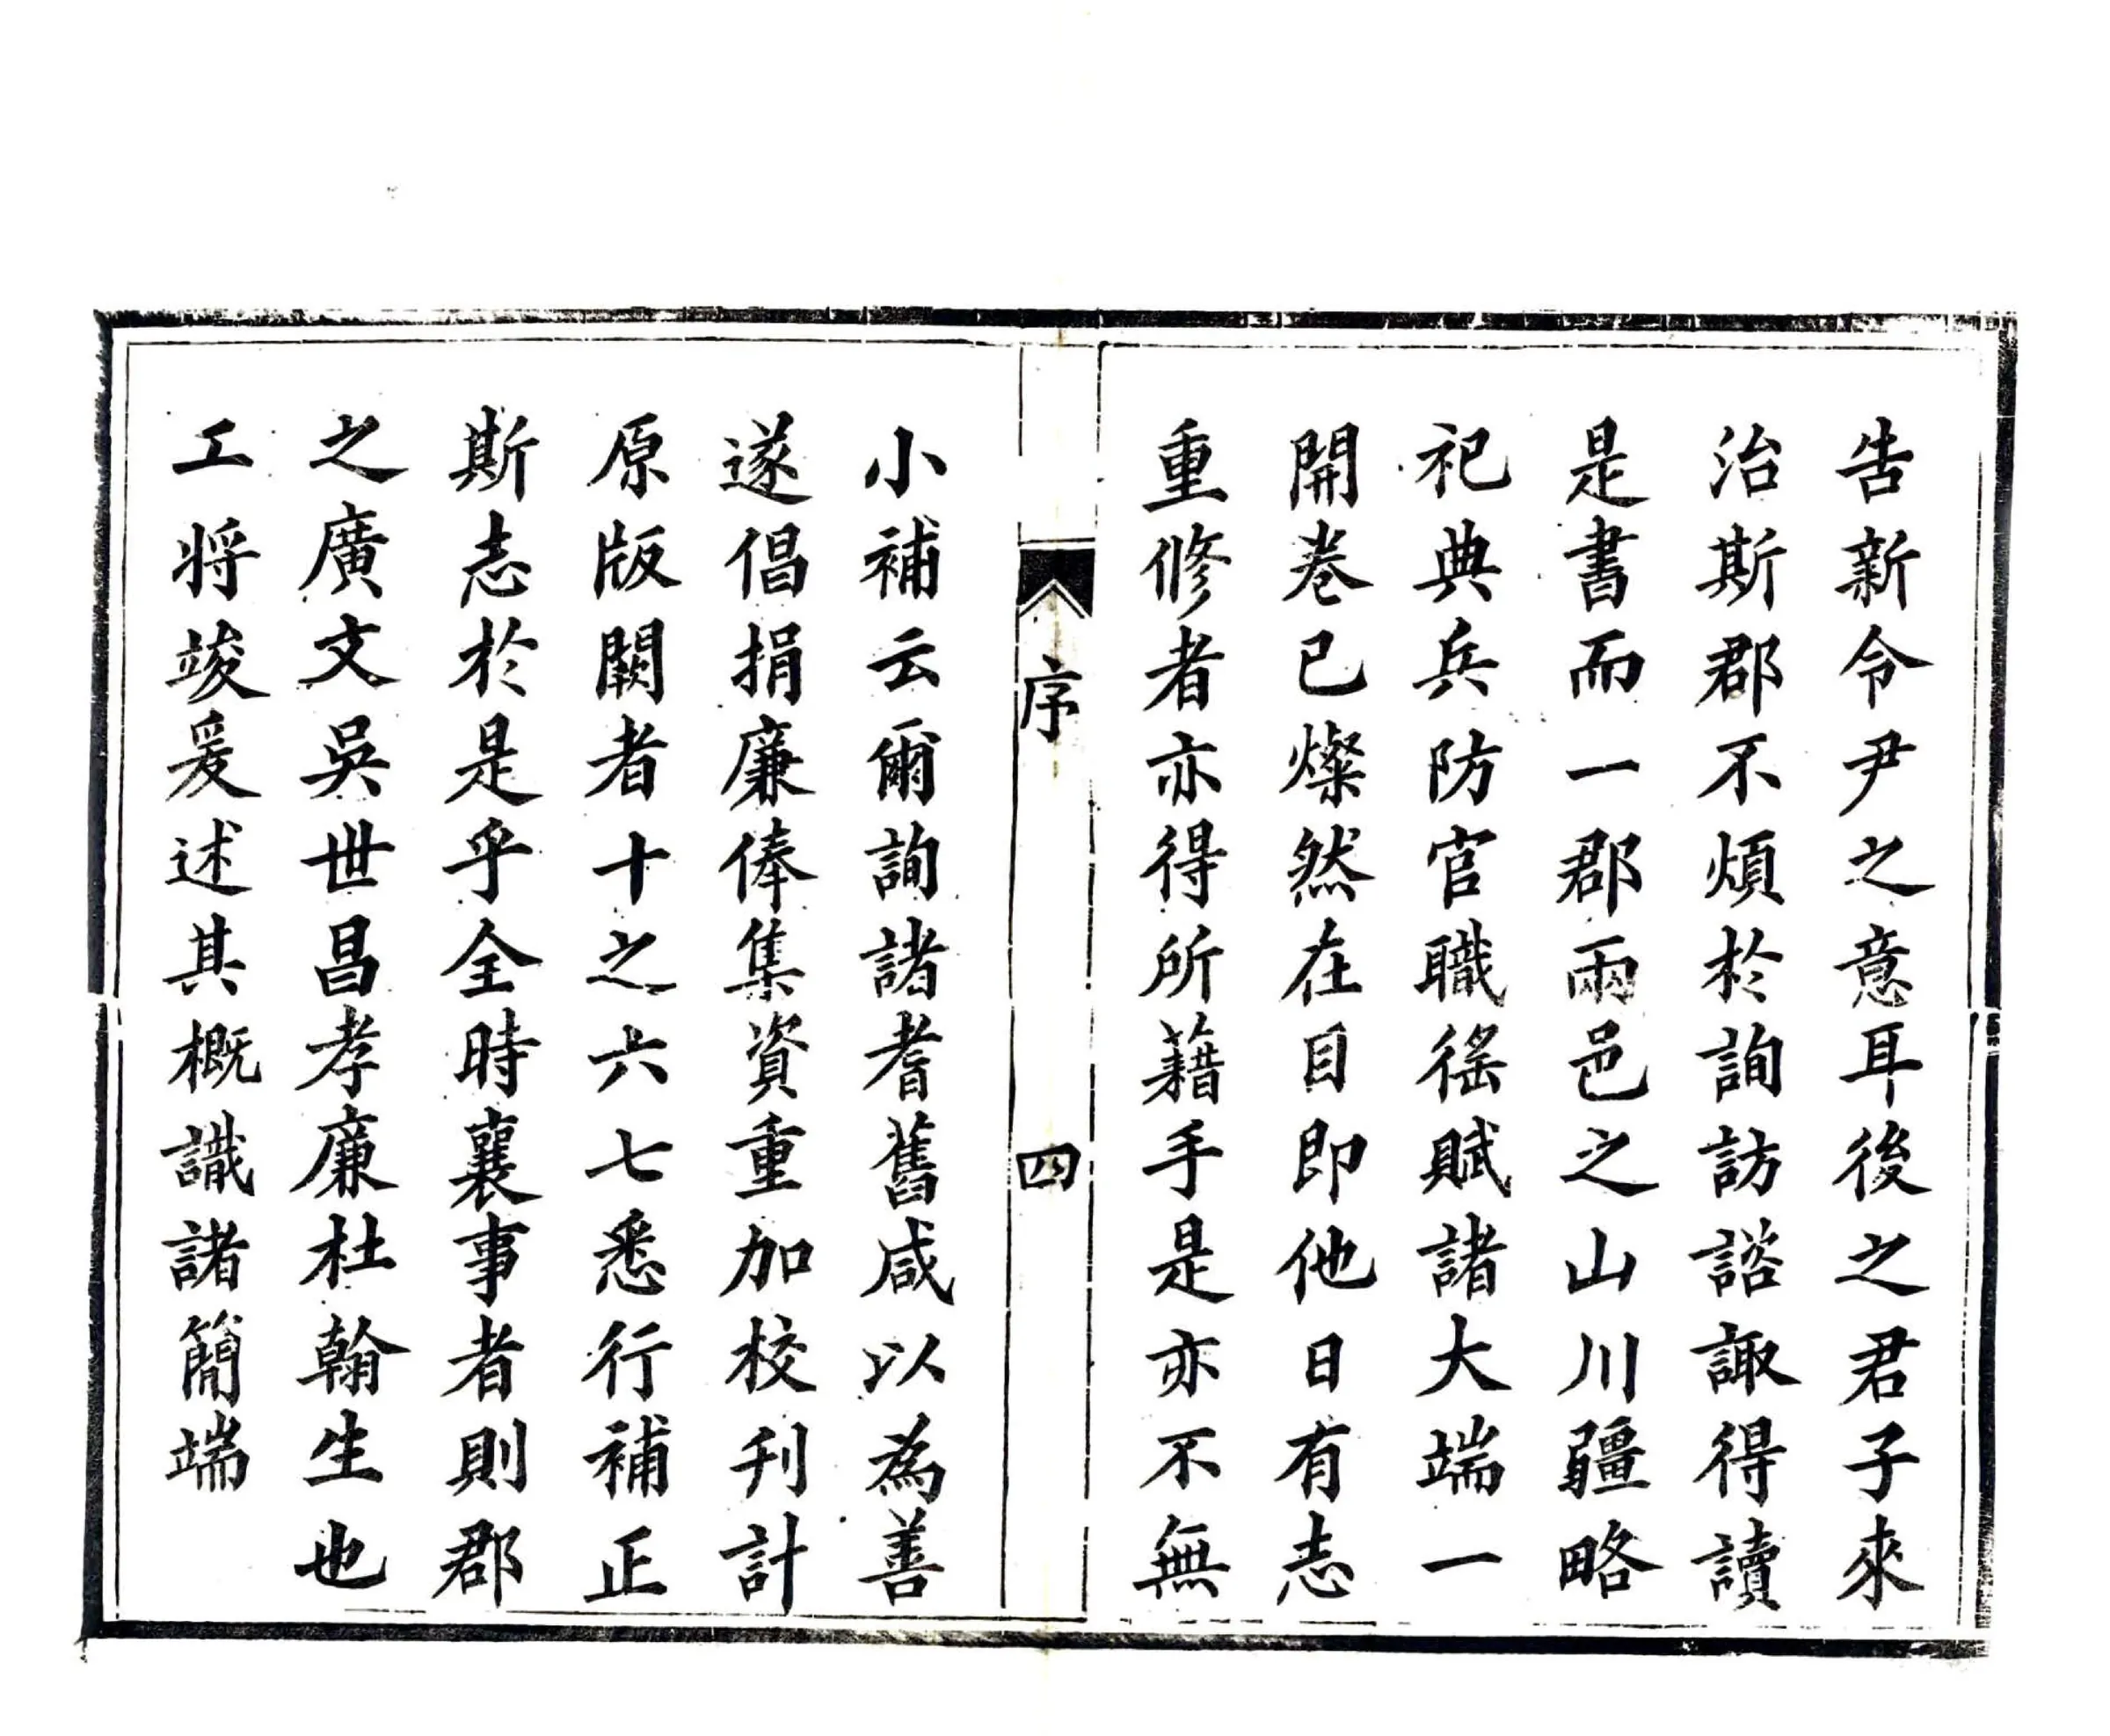 告新令尹之意耳後之君子來
治斯郡不煩於詢訪諮諏得讀
是書而一郡兩邑之山川疆略
祀典兵防官職徭賦諸大端一
開卷已燦然在目即他日有志
重修者亦得所藉手是亦不無
序
四
小補云爾詢諸耆舊咸以為善
遂倡捐廉俸集資重加校刊計
原版闕者十之六七悉行補正
斯志於是乎全時襄事者則郡
之廣文吳世昌孝廉杜翰生也
工将竣爰述其概識諸簡端